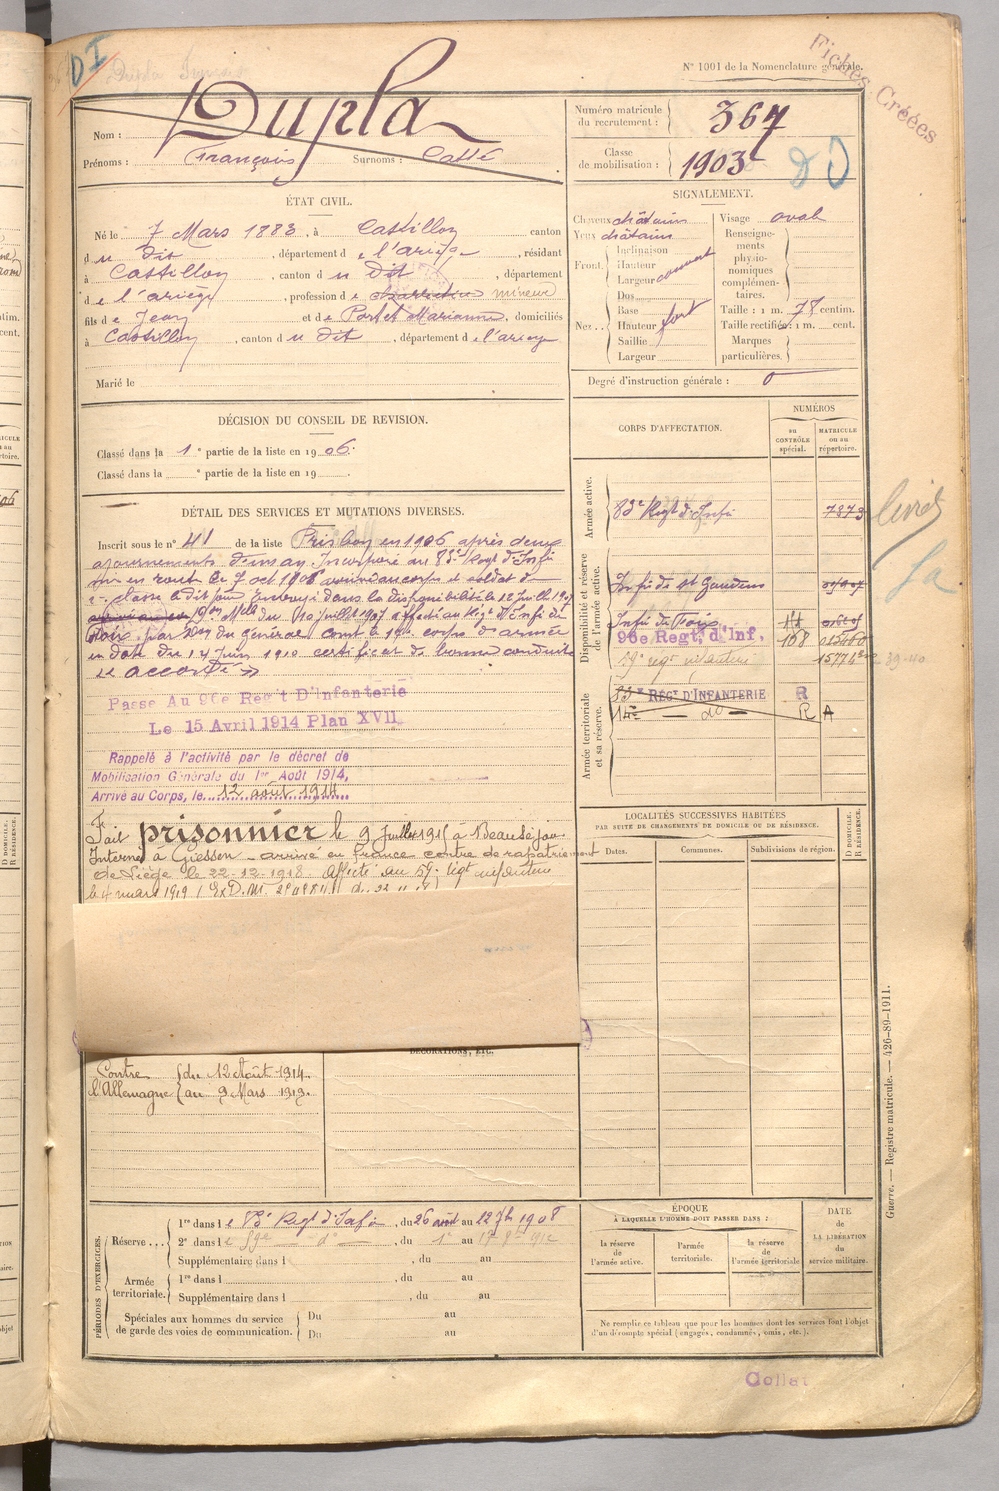 DI
N° 1001 de la Nomenclature générale.
Fiches Créées
Nom : Dupla
Prénoms : François Surnoms : Catté
Numéro matricule du recrutement : 367
Classe de mobilisation : 1903
ÉTAT CIVIL.
Né le 7 Mars 1883, à Castillon canton
du dit, département de l'ariège, résidant
à Castillon, canton du Dit, département
de l'ariège, profession de charretier mineur
fils de Jean et de Portet Marianne, domiciliés
à Castillon, canton du dit, département de l'ariege
Marié le
SIGNALEMENT.
Cheveux châtains
Yeux châtains
Front. Inclinaison
Hauteur
Largeur couvert
Nez... Dos
Base
Hauteur fort
Saillie
Largeur
Visage oval
Renseignements physionomiques complémentaires.
Taille : 1 m. 78 centim.
Taille rectifiée : 1 m. cent.
Marques particulières.
Degré d'instruction générale : 0
DÉCISION DU CONSEIL DE REVISION.
Classé dans la 1e partie de la liste en 1906.
Classé dans la e partie de la liste en 19
DÉTAIL DES SERVICES ET MUTATIONS DIVERSES.
Inscrit sous le n° 41 de la liste Pris bon en 1906 après deux
ajournements d'un an. Incorporé au 83e Regt d'Infie
mis en route le 7 oct 1906 arrivé au corps et soldat de
2e classe le dit jour. Envoyé dans la disponibilité le 12 Juillet 1907
du 10 juillet 1907 affecté au Régt d'Infie de
Foix par du général Comt le 17e corps d'armée
en date du 14 Juin 1910 certificat de bonne conduite
accordé
Passé Au 96e Reg't D'Infanterie
Le 15 Avril 1914 Plan XVII
Rappelé à l'activité par le décret de
Mobilisation Générale du 1er Août 1914,
Arrivé au Corps, le 12 août 1914
Fait prisonnier le 9 Juillet 1915 à Beauséjour.
Interné à Giessen - arrivé en France centre de rapatriement
de Liège le 22-12-1918. Affecté au 59e régt infanterie
le 4 mars 1919
CORPS D'AFFECTATION.
NUMÉROS
au CONTRÔLE spécial.
MATRICULE ou au répertoire.
Armée active.
83e Regt d'Infie 7373
livret
Disponibilité et réserve de l'armée active.
Infie de St Gaudens
Infie de Foix
96e Regt. d'Inf. 168
59e régt infanterie
Armée territoriale et sa réserve.
83e RÉGT D'INFANTERIE R
14e - do - R A
LOCALITÉS SUCCESSIVES HABITÉES
PAR SUITE DE CHANGEMENTS DE DOMICILE OU DE RÉSIDENCE.
Dates. Communes. Subdivisions de région. D DOMICILE. R RÉSIDENCE.
DÉCORATIONS, ETC.
Contre l'Allemagne du 12 Août 1914.
au 9 Mars 1919.
PÉRIODES D'EXERCICES.
Réserve... 1re dans le 83e Regt d'Infie, du 26 août au 22 7bre 1908
2e dans le 59e do, du 1er au 1912
Supplémentaire dans l , du au
Armée territoriale. 1re dans l , du au
Supplémentaire dans l , du au
Spéciales aux hommes du service de garde des voies de communication. Du au
Du au
ÉPOQUE
À LAQUELLE L'HOMME DOIT PASSER DANS :
la réserve de l'armée active.
l'armée territoriale.
la réserve de l'armée territoriale
DATE de LA LIBÉRATION du service militaire.
Ne remplir ce tableau que pour les hommes dont les services font l'objet
d'un décompte spécial (engagés, condamnés, omis, etc.).
Guerre. — Registre matricule. — 426-89-1911.
Collat